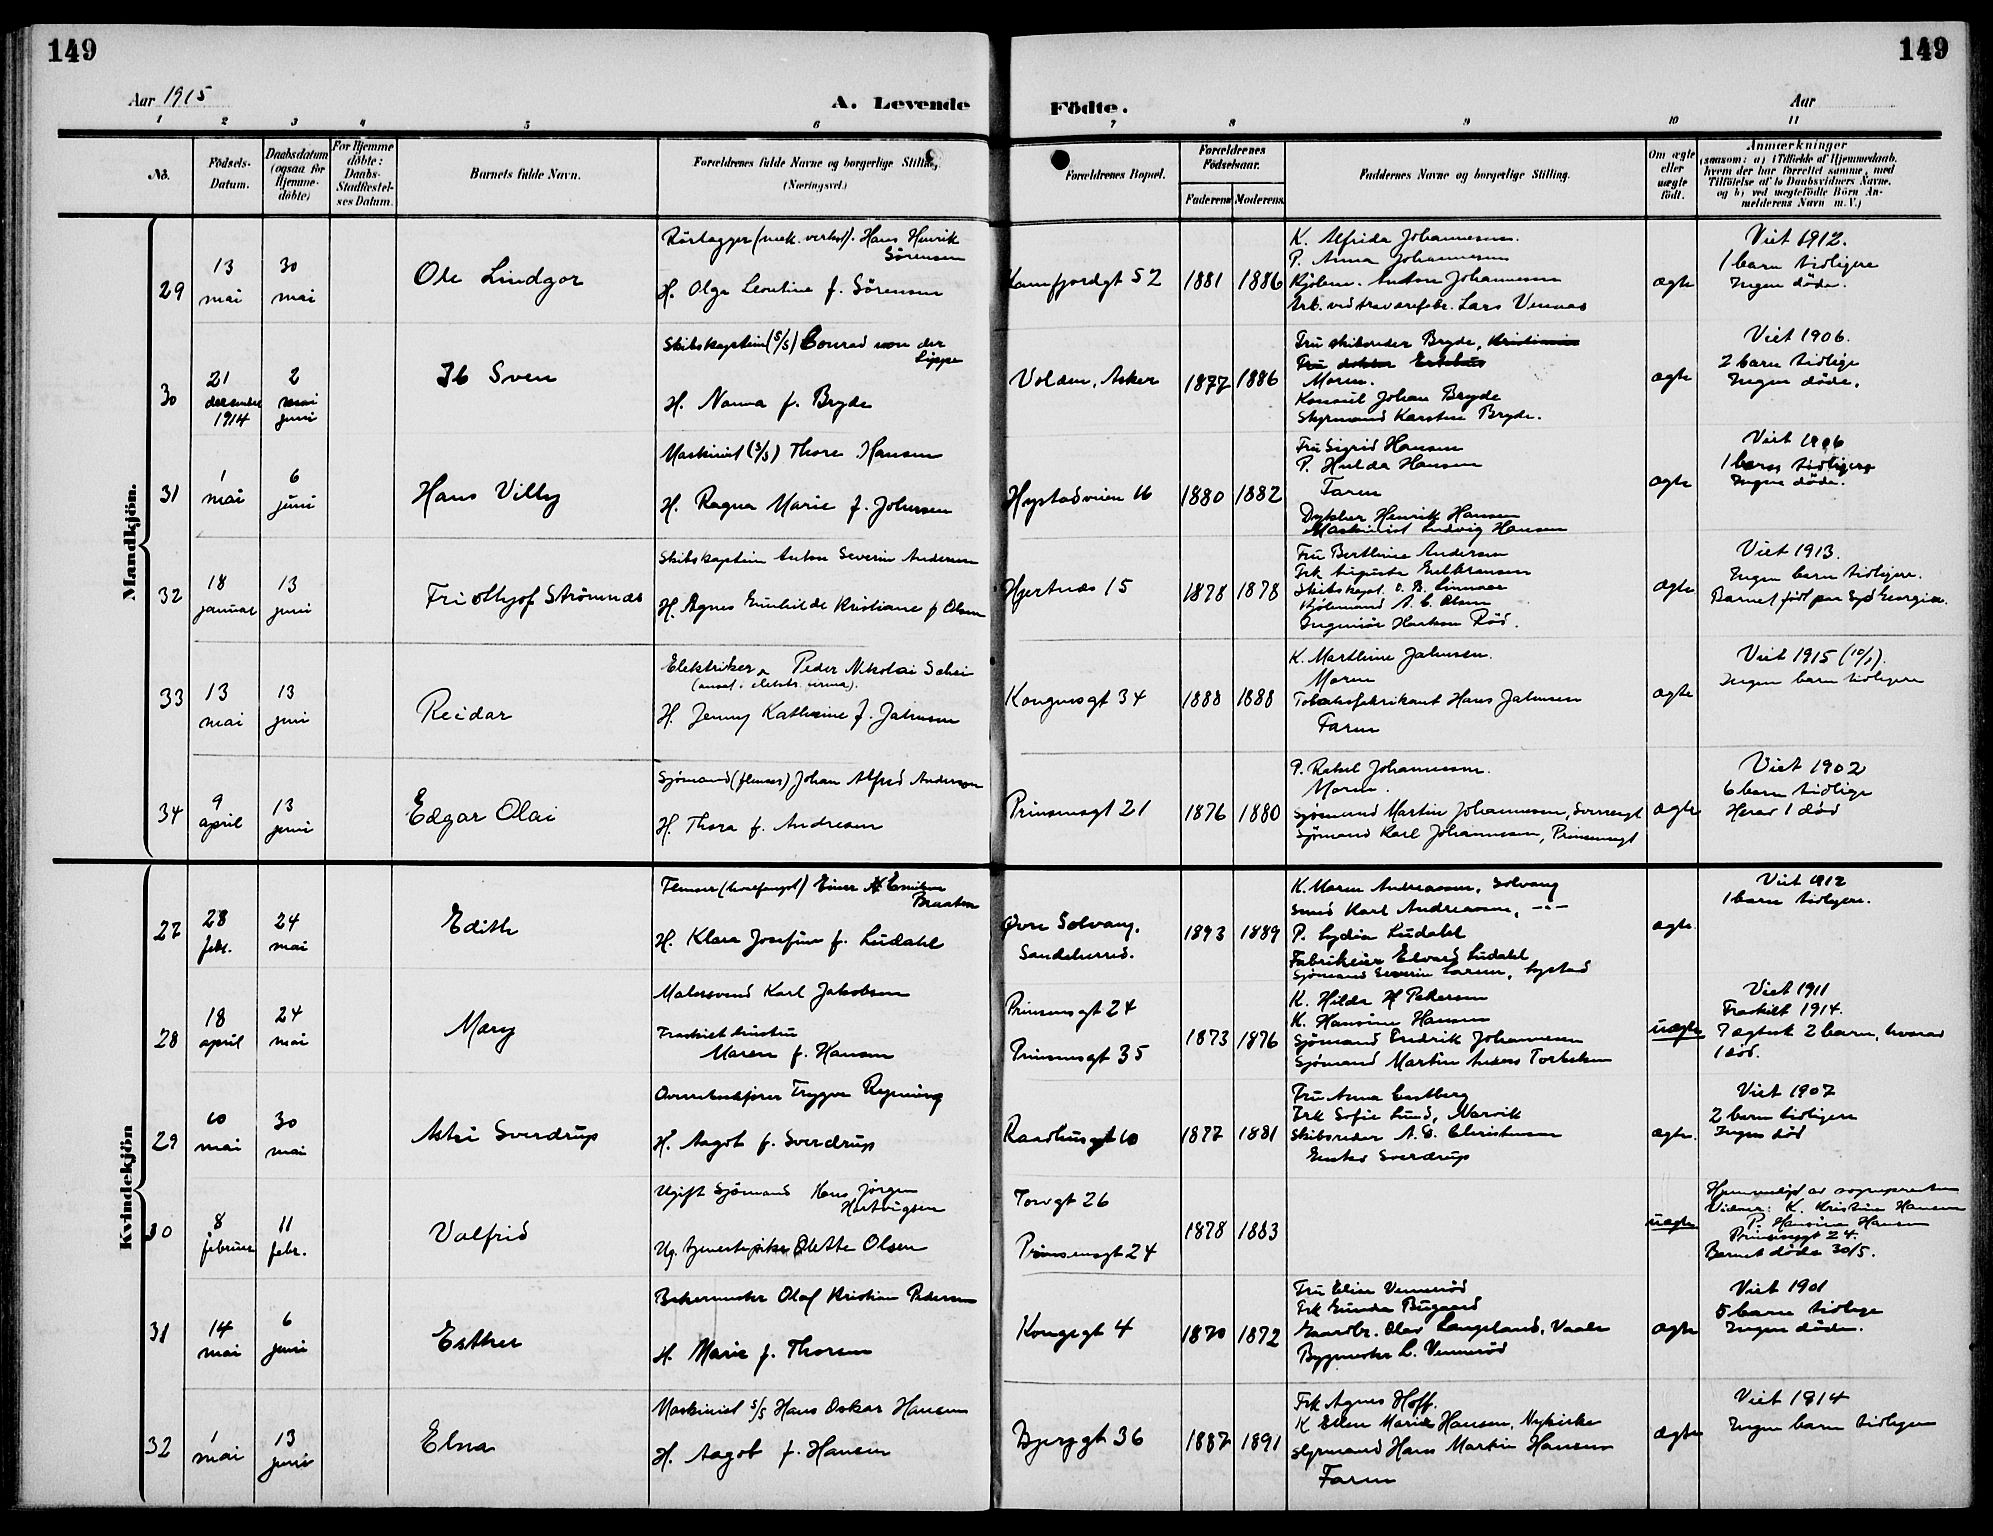 149
149
Aar 1915
A. Levende
Födte.
Aar
1 2 3 4 5 6 7 8 9 10 11
No.
Födsels-
Datum.
Daabsdatum
(ogsaa for
Hjemme-
döbte)
For Hjemme
döbte:
Daabs-
Stadfæstel-
ses Datum.
Barnets fulde Navn.
Forældrenes fulde Navne og borgerlige Stilling
(Næringsvei.)
Forældrenes Bopæl.
Forældrenes
Födselsaar.
Faderens
Moderens
Faddernes Navne og borgerlige Stilling.
Om ægte
eller
uægte
födt.
Anmærkninger
(saasom: a) i Tilfælde af Hjemmedaab,
hvem der har forrettet samme, med
Tilföielse af to Daabsvidners Navne,
og b) ved uegtefödte Börn An-
melderens Navn m. V.)
Mandkjön.
29
13
mai
30
mai
Ole Lindgor
Rørlægger (mek. verksd). Hans Henrik
Sörensen
H. Olga Leontine f. Sörensen
Kamfjordgt 52
1881
1886
K. Alfrida Johannessen.
P. Anna Johannessen
Anton Johannessen
Arb. ved trævarefabr. Lars Vennes
ægte
Viet 1912.
1 barn tidligere
Ingen döde.
30
21
december
1914
2
mai
juni
Ib Sven
Skibskaptein (S/S) Conrad von der
Lippe
H. Nanna f. Bryde
Volden, Asker
1877
1886
Fru skibsreder Bryde, Kristiania
Fru doktor
Moren.
Konsul Johan Bryde
Styrmand Karsten Bryde.
ægte
Viet 1906.
2 barn tidlige
Ingen döde.
31
1
mai
6
juni
Hans Villy
Maskinist (S/S) Thore Hansen
H. Ragna Marie f. Johnsen
Hystadveien 16
1880
1882
Fru Sigrid Hansen
P. Hulda Hansen
Faren
Dykker Henrik Hansen
Maskinist Ludvig Hansen
ægte
Viet 1906
1 barn tidligere
Ingen döde.
32
18
januar
13
juni
Fridthjof Strömnes
Skibskaptein Anton Severin Andersen
H. Agnes Gunhilde Kristiane f Olsen
Hjertnes 15
1878
1878
Fru Berthine Andersen
Frk Augusta Gulbransen
Skibskapt. O. B.
A. C. Olsen
Ingeniör Röd.
ægte
Viet 1913.
Ingen barn tidligere.
Barnet födt paa Syd Georgia.
33
13
mai
13
juni
Reidar
Elektriker Peder Nikolai Schei
(ansat i elektr. firma).
H. Jenny Kathrine f. Jahnsen
Kongensgt 34
1888
1888
K. Marthine Jahnsen.
Moren
Tobaksfabrikant Hans Jahnsen
Faren
ægte
Viet 1915 (10/1).
Ingen barn tidligere
34
9
april
13
juni
Edgar Olai
Sjömand (flenser) Johan Alfred Andersen
H. Thora f. Andresen
Prinsensgt 21
1876
1880
P. Rakel Johannessen.
Moren.
Sjömand Martin Johannessen, Sverresgt
Sjömand Karl Johannessen, Prinsensgt
ægte
Viet 1902
6 barn tidlige
Herav 1 död
Kvindekjön
27
28
febr.
24
mai
Edith
Flenser (hvalfangst) Einar
Braaten
H. Klara Josefine f. Lüdahl
Övre Solvang.
Sandeherred.
1893
1889
K. Maren Andreassen, Solvang
Smed Karl Andreassen, -"-
P. Lydia Lüdahl
Fabrikeier Edvard Lüdahl
Sjömand Severin Larsen, Lystad
ægte.
Viet 1912
1 barn tidligere.
28
18
april
24
mai
Mary
Malersvend Karl Jakobsen
Fraskilt hustru
Maren f. Hansen
Prinsensgt 24
Prinsensgt 35
1873
1876
K. Hilda H Pettersen
K. Hansine Hansen
Sjömand Endrik Johannessen
Sjömand Martin Anders Torbeksen
uægte
Viet 1911
Fraskilt 1914.
I ægtesk 2 barn, hvorav
1 död.
29
10
mai
30
mai
Astri Sverdrup
Trygve Rynning
H. Aagot f. Sverdrup
Raadhusgt 10
1877
1881
Fru Anna Eastberg
Frk Sofie Lund, Narvik
Skibsreder A. E. Christensen
Gustav Sverdrup
ægte.
Viet 1907
2 barn tidligere
Ingen död
30
8
februar
11
febr.
Valfrid
Ugift Sjömand Hans Jörgen
Hartvigsen
Ug. tjenestepike Olette Olsen
Torvgt 26
Prinsensgt 24
1878
1883
uægte
Hjemmedöpt av sognepresten
Vidner: K. Kristine Hansen
P. Hansine Hansen
Prinsensgt 24.
Barnet döde 30/5.
31
14
mai
6
juni
Esther
Bakermester Olaf Kristian Pedersen
H. Marie f. Thorsen
Kongsgt 4
1870
1872
Fru Elise Vennerød
Frk Gunda Bugaard
Gaardbr. Olav Langeland, Vaale
Bygmester L. Vennerød
ægte
Viet 1901
5 barn tidlige
Ingen döde.
32
1
mai
13
juni
Elna
Maskinist S/S Hans Oskar Hansen
H. Aagot f. Hansen
Bjerggt 36
1887
1891
Frk Agnes Hoff.
K Ellen Marie Hansen, Nykirke
Styrmand Hans Martin Hansen
Faren
ægte
Viet 1914
Ingen barn tidligere